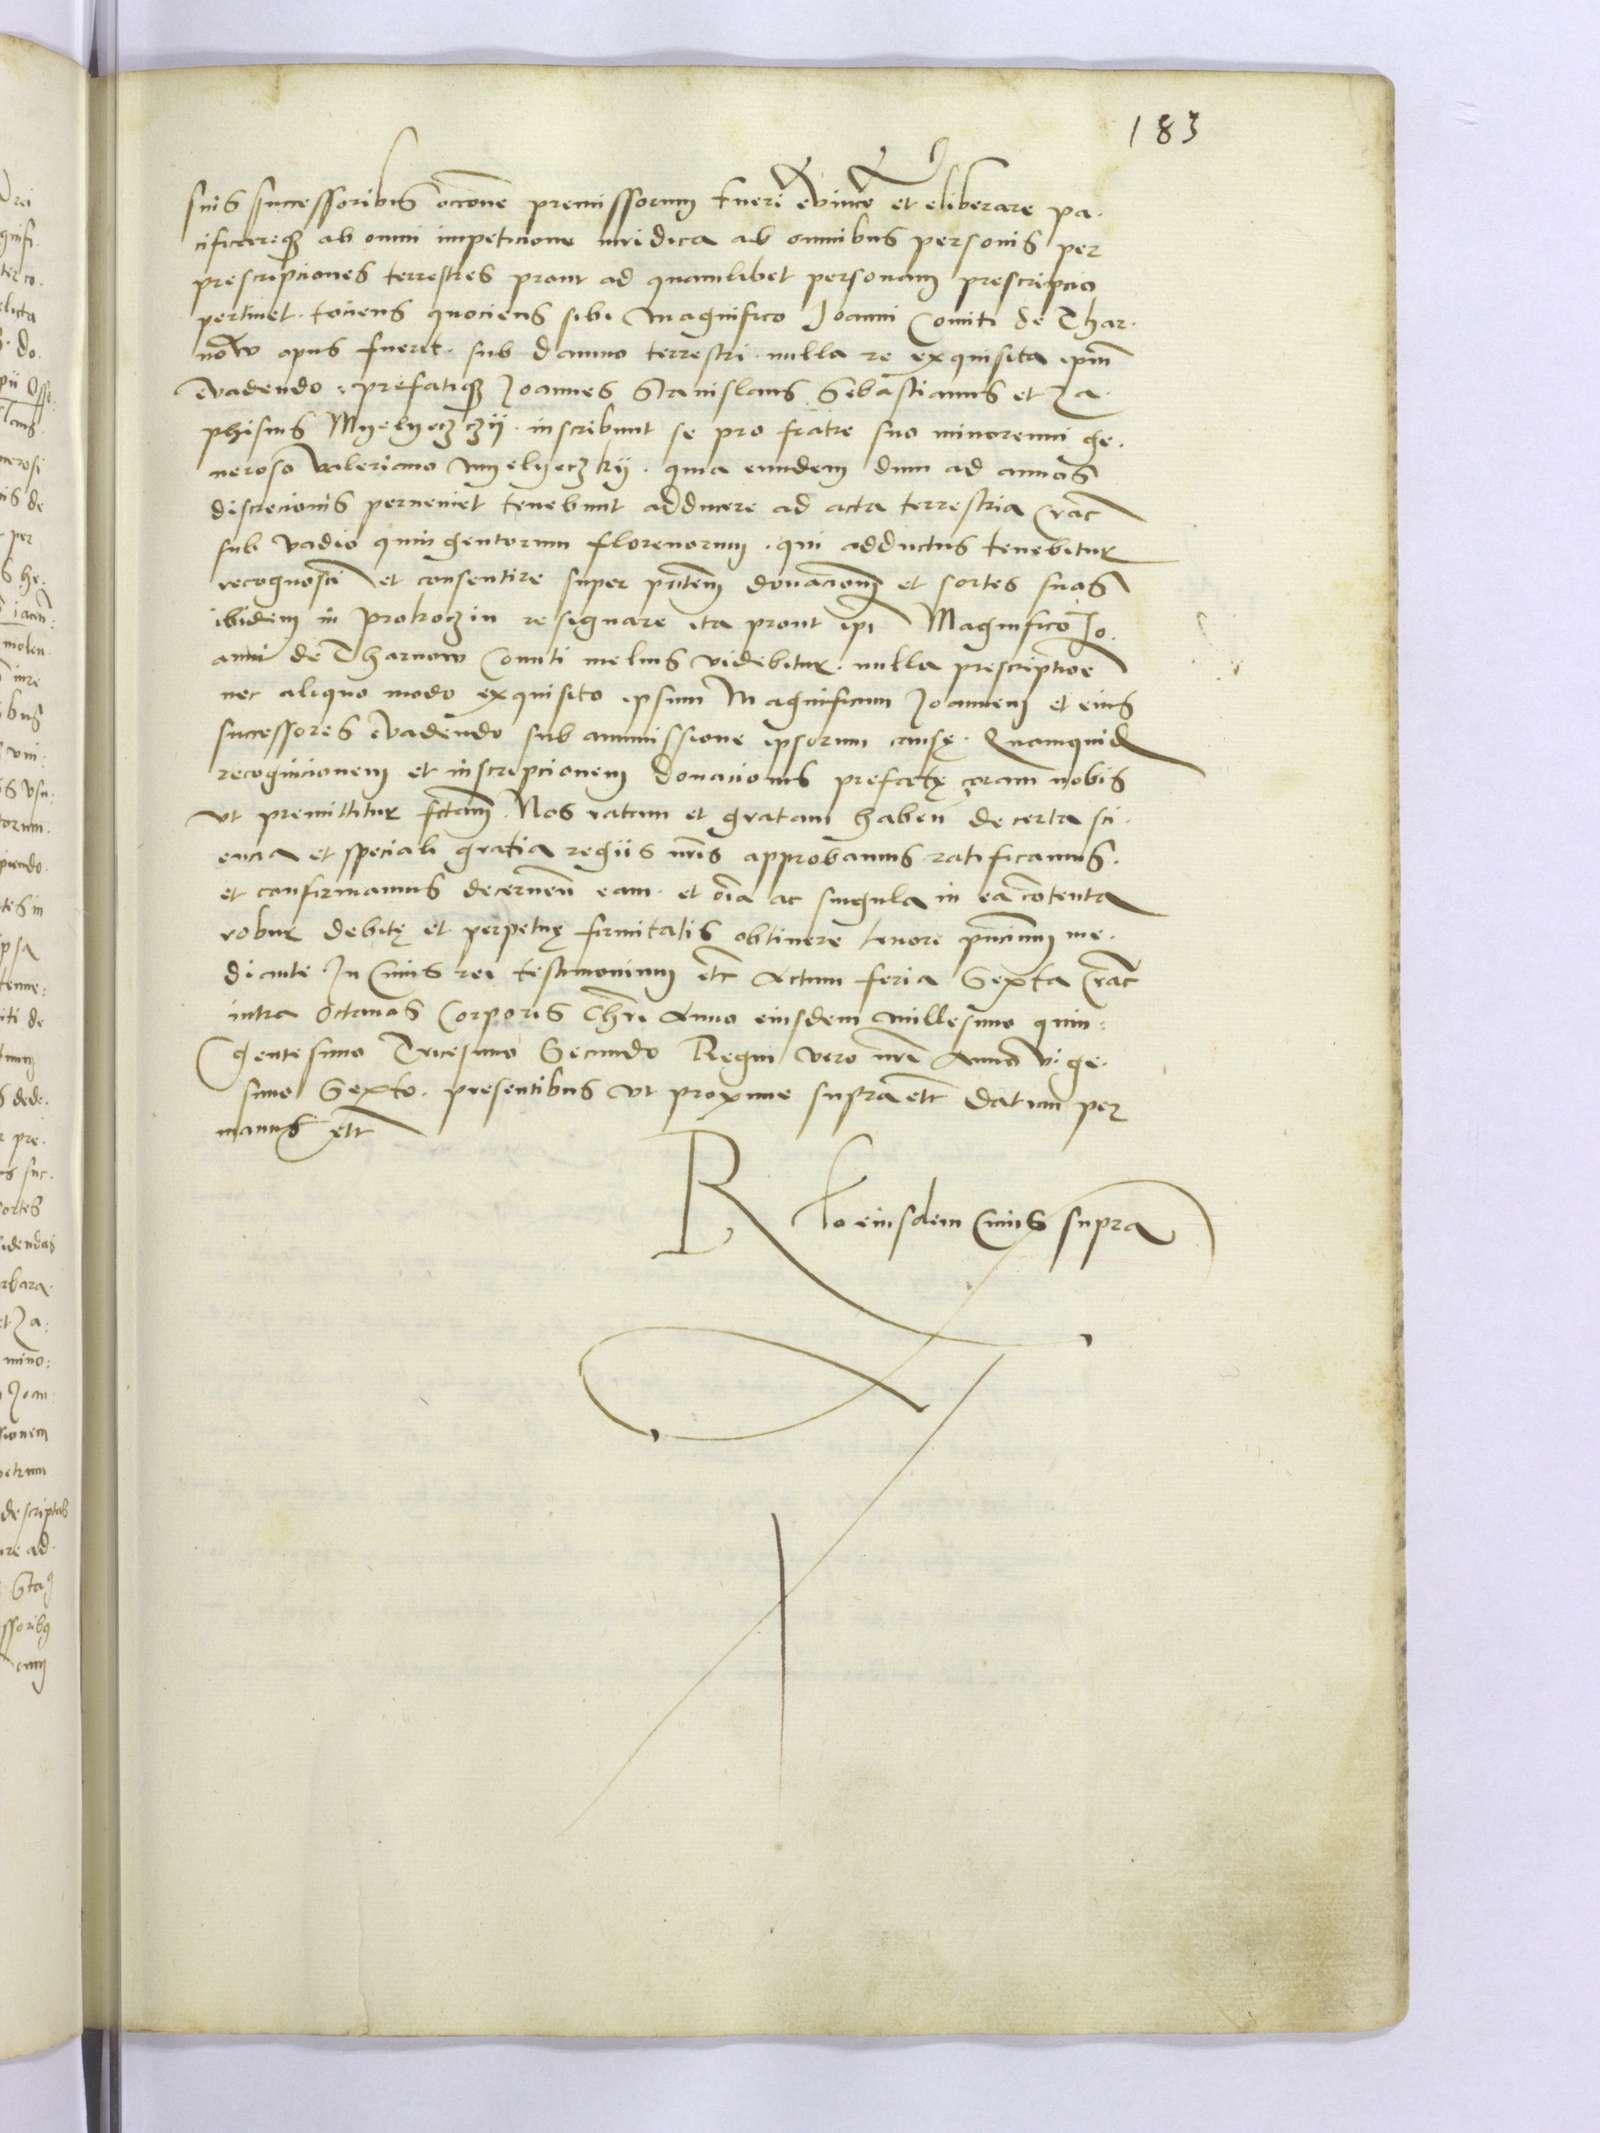 183
suis successoribus occõne premissorum tueri evincẽ et eliberare pa.
cificareq̃ ab omni impeticione iuridica ab omnibus personis per
prescripciones terrestres prout ad quamlibet personam prescripcio
pertinet. tociens quociens sibi Magnifico Joanni Comiti de Thar.
now opus fuerit. sub damno terrestri. nulla re exquisita ip̃m
evadendo. prefatiq̃ Joannes Stanislaus Sebastianus et Za.
phisius Myelyeczczÿ. inscribunt se pro fratre suo minorenni ge.
neroso Valeriano myelyeczkÿ. quia eundem dum ad annos
discrecionis perveniet tenebunt adducere ad acta terrestria Crac̃
sub vadio quingentorum florenorum. qui adductus tenebitur
recognosci et consentire super pñtem donacionem et sortes suas
ibidem in Prokoczin resignare ita prout ip̃i Magnifico Jo.
anni de Tharnow Comiti melius videbitur. nulla prescriptioẽ
nec aliquo modo exquisito ipsum Magnificum Joannem et eius
successores evadendo sub ammissione ipsorum causę. Quamquid̃
recognicionem et inscripcionem donacionis prefatę coram nobis
ut premittitur fctam̃. Nos ratam et gratam habeñ de certa sci.
encia et speciali gratia regiis nr̃is approbamus ratificamus.
et confirmamus decerneñ eam. et oĩa ac singula in ea contenta
robur debitę et perpetuę firmitatis obtinere tenore pñcium me.
diante In Cuius rei testimonium etc̃ Actum feria Sexta Crac̃
intra Octavas Corporis Chr̃i Anno eiusdem Millesimo quin:
gentesimo Tricesimo Secundo Regni vero nr̃i Anno vige.
simo Sexto. presentibus ut proxime supra etc̃ datum per
manus etc̃
R lo eiusdem Cuius supra